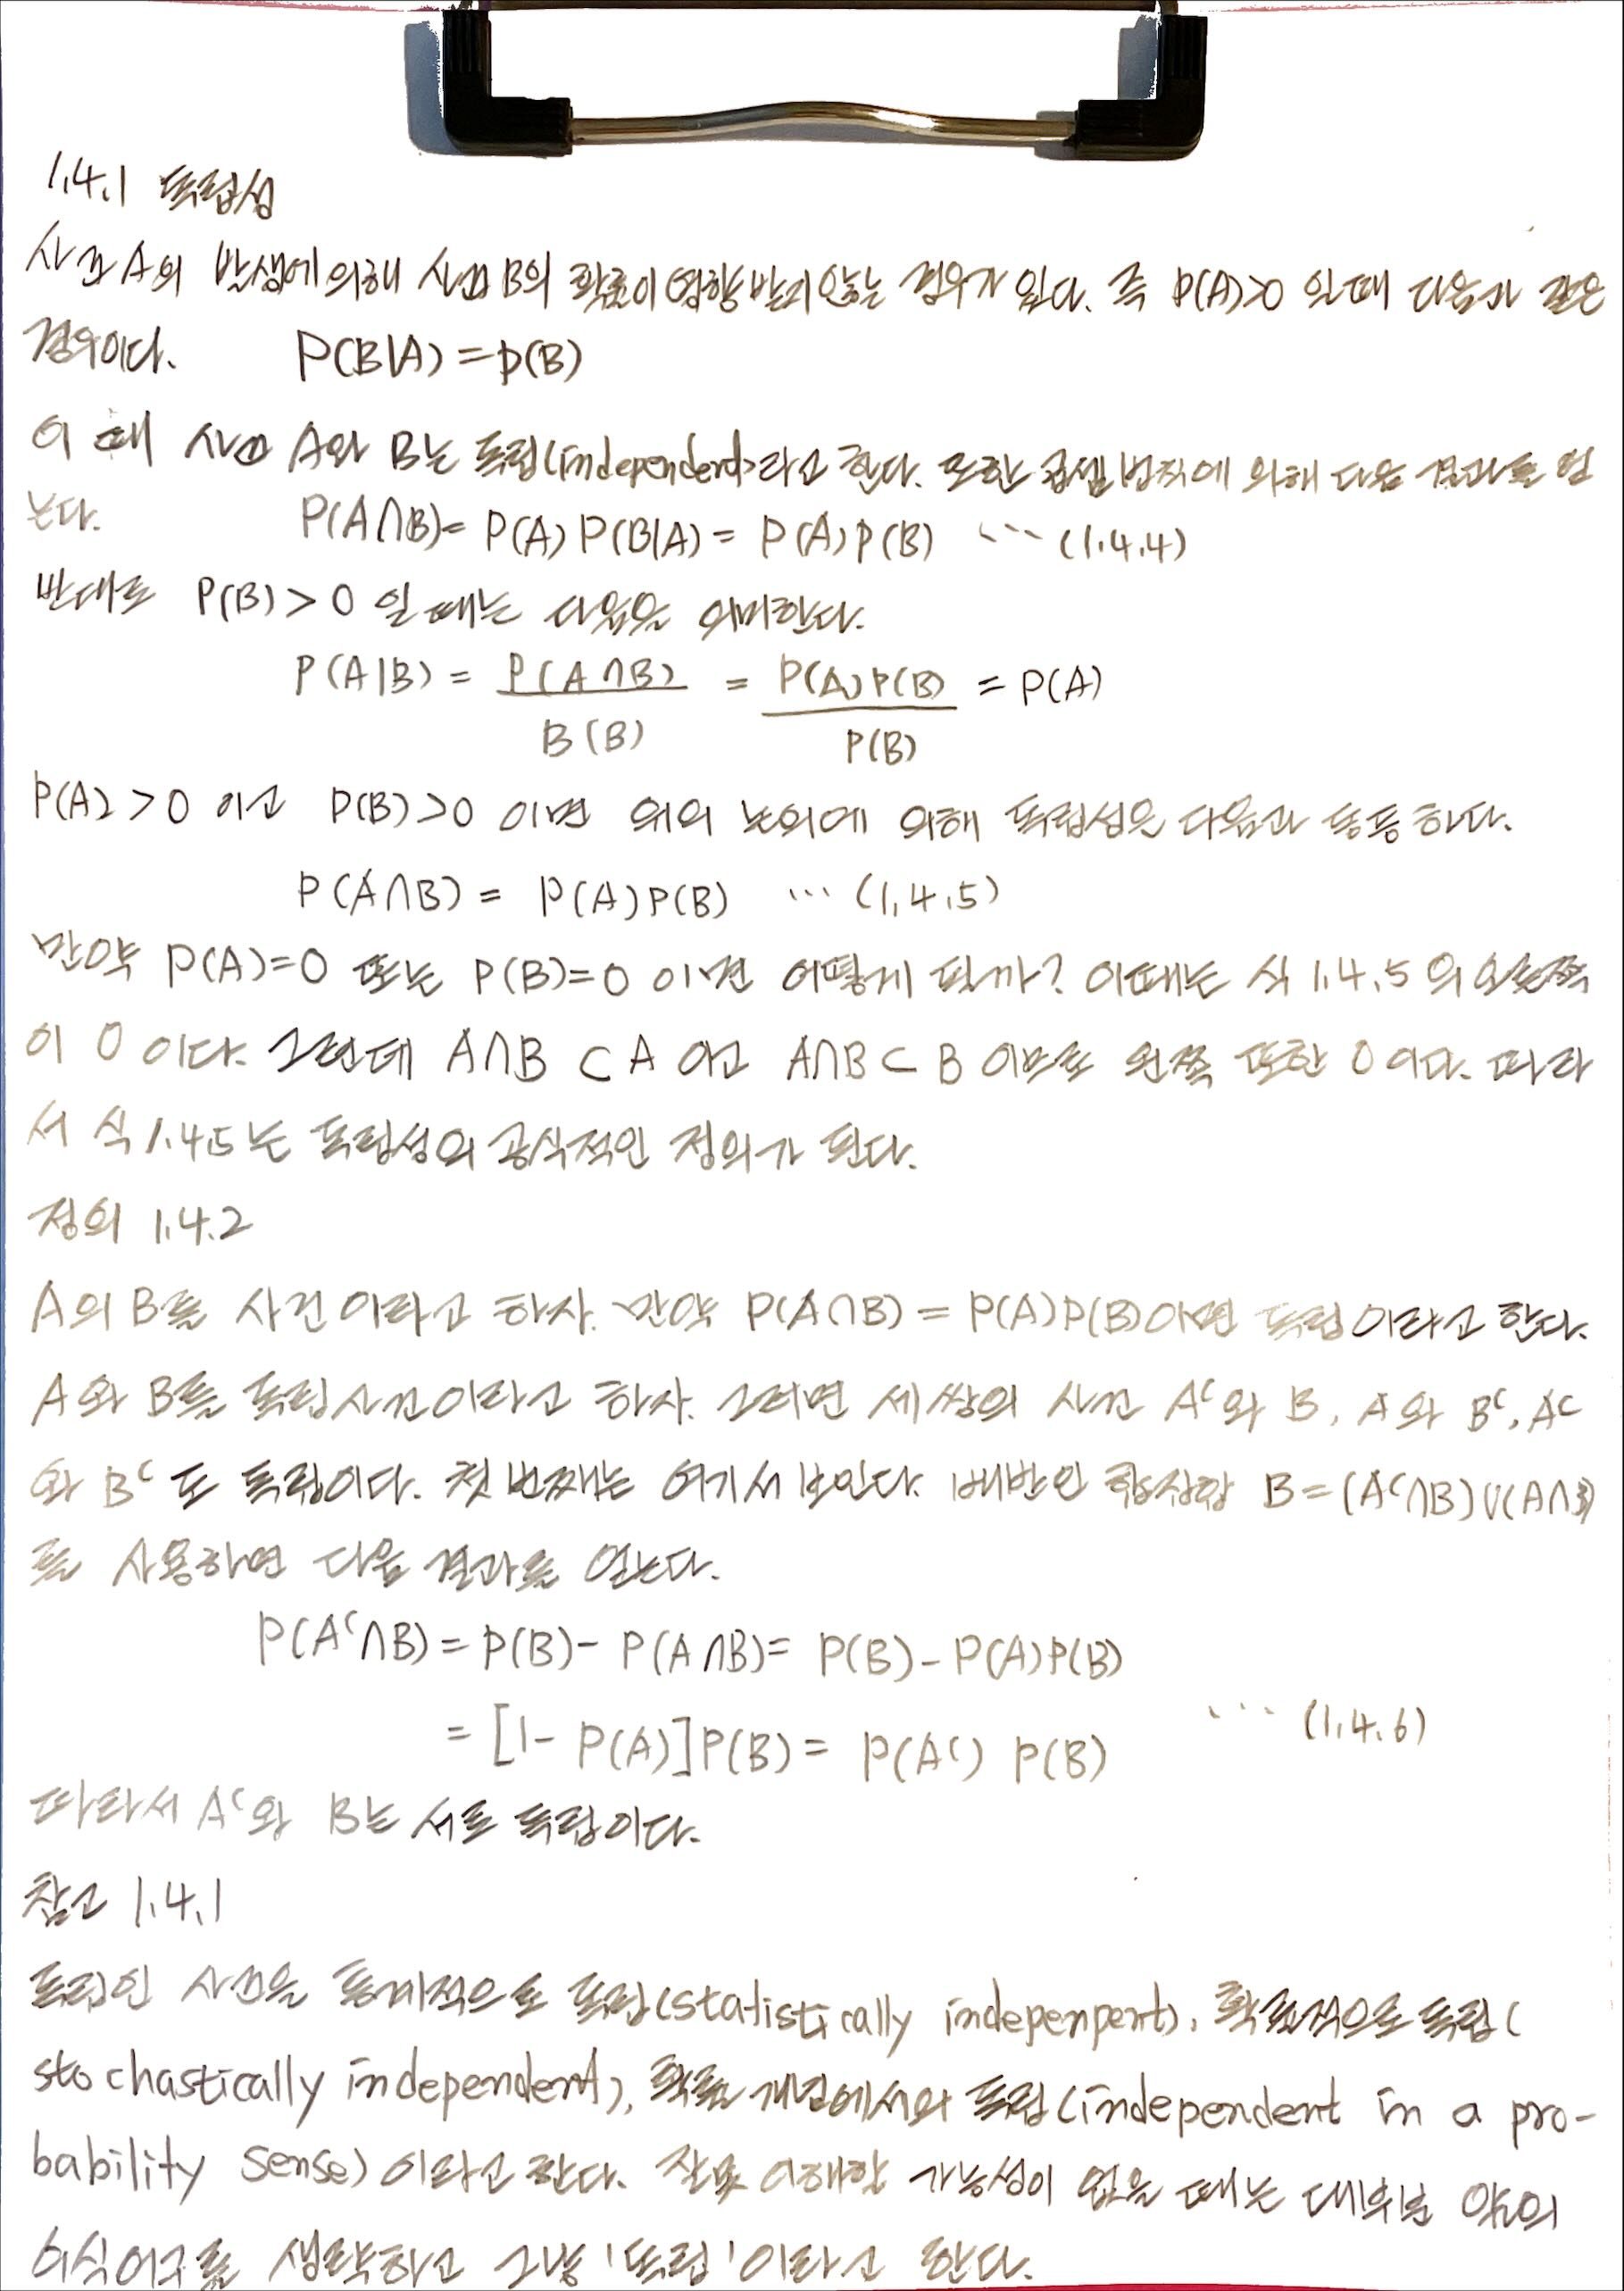 1.4.1 독립성
사건 A의 발생에 의해 사건 B의 확률이 영향받지 않는 경우가 있다. 즉 P(A)>0 일 때 다음과 같은
경우이다. P(B|A)=P(B)
이 때 사건 A와 B는 독립(independent)라고 한다. 또한 곱셈법칙에 의해 다음 결과를 얻
는다. P(A∩B)= P(A) P(B|A) = P(A)P(B) ··· (1.4.4)
반대로 P(B) > 0 일 때는 다음을 의미한다.
P(A|B) = P(A∩B) / B(B) = P(A)P(B) / P(B) = P(A)
P(A) > 0 이고 P(B) >0 이면 위의 논의에 의해 독립성은 다음과 동등하다.
P(A∩B) = P(A)P(B) ··· (1.4.5)
만약 P(A)=0 또는 P(B)=0 이면 어떻게 될까? 이때는 식 1.4.5의 오른쪽
이 0 이다. 그런데 A∩B ⊂ A 이고 A∩B ⊂ B 이므로 왼쪽 또한 0 이다. 따라
서 식 1.4.5는 독립성의 공식적인 정의가 된다.
정의 1.4.2
A의 B를 사건이라고 하자. 만약 P(A∩B) = P(A)P(B)이면 독립이라고 한다.
A와 B를 독립사건이라고 하자. 그러면 세 쌍의 사건 Aᶜ와 B, A와 Bᶜ, Aᶜ
와 Bᶜ도 독립이다. 첫 번째는 여기서 보인다. 배반인 합집합 B=(Aᶜ∩B)∪(A∩B)
를 사용하면 다음 결과를 얻는다.
P(Aᶜ∩B) = P(B)- P(A∩B)= P(B)-P(A)P(B)
= [1- P(A)]P(B) = P(Aᶜ) P(B) ··· (1.4.6)
따라서 Aᶜ와 B는 서로 독립이다.
참고 1.4.1
독립인 사건을 통계적으로 독립(statistically indepenpent), 확률적으로 독립(
stochastically independent), 확률 개념에서의 독립(independent in a pro-
bability sense)이라고 한다. 잘못 이해할 가능성이 없을 때는 대부분 앞의
수식어구를 생략하고 그냥 '독립'이라고 한다.